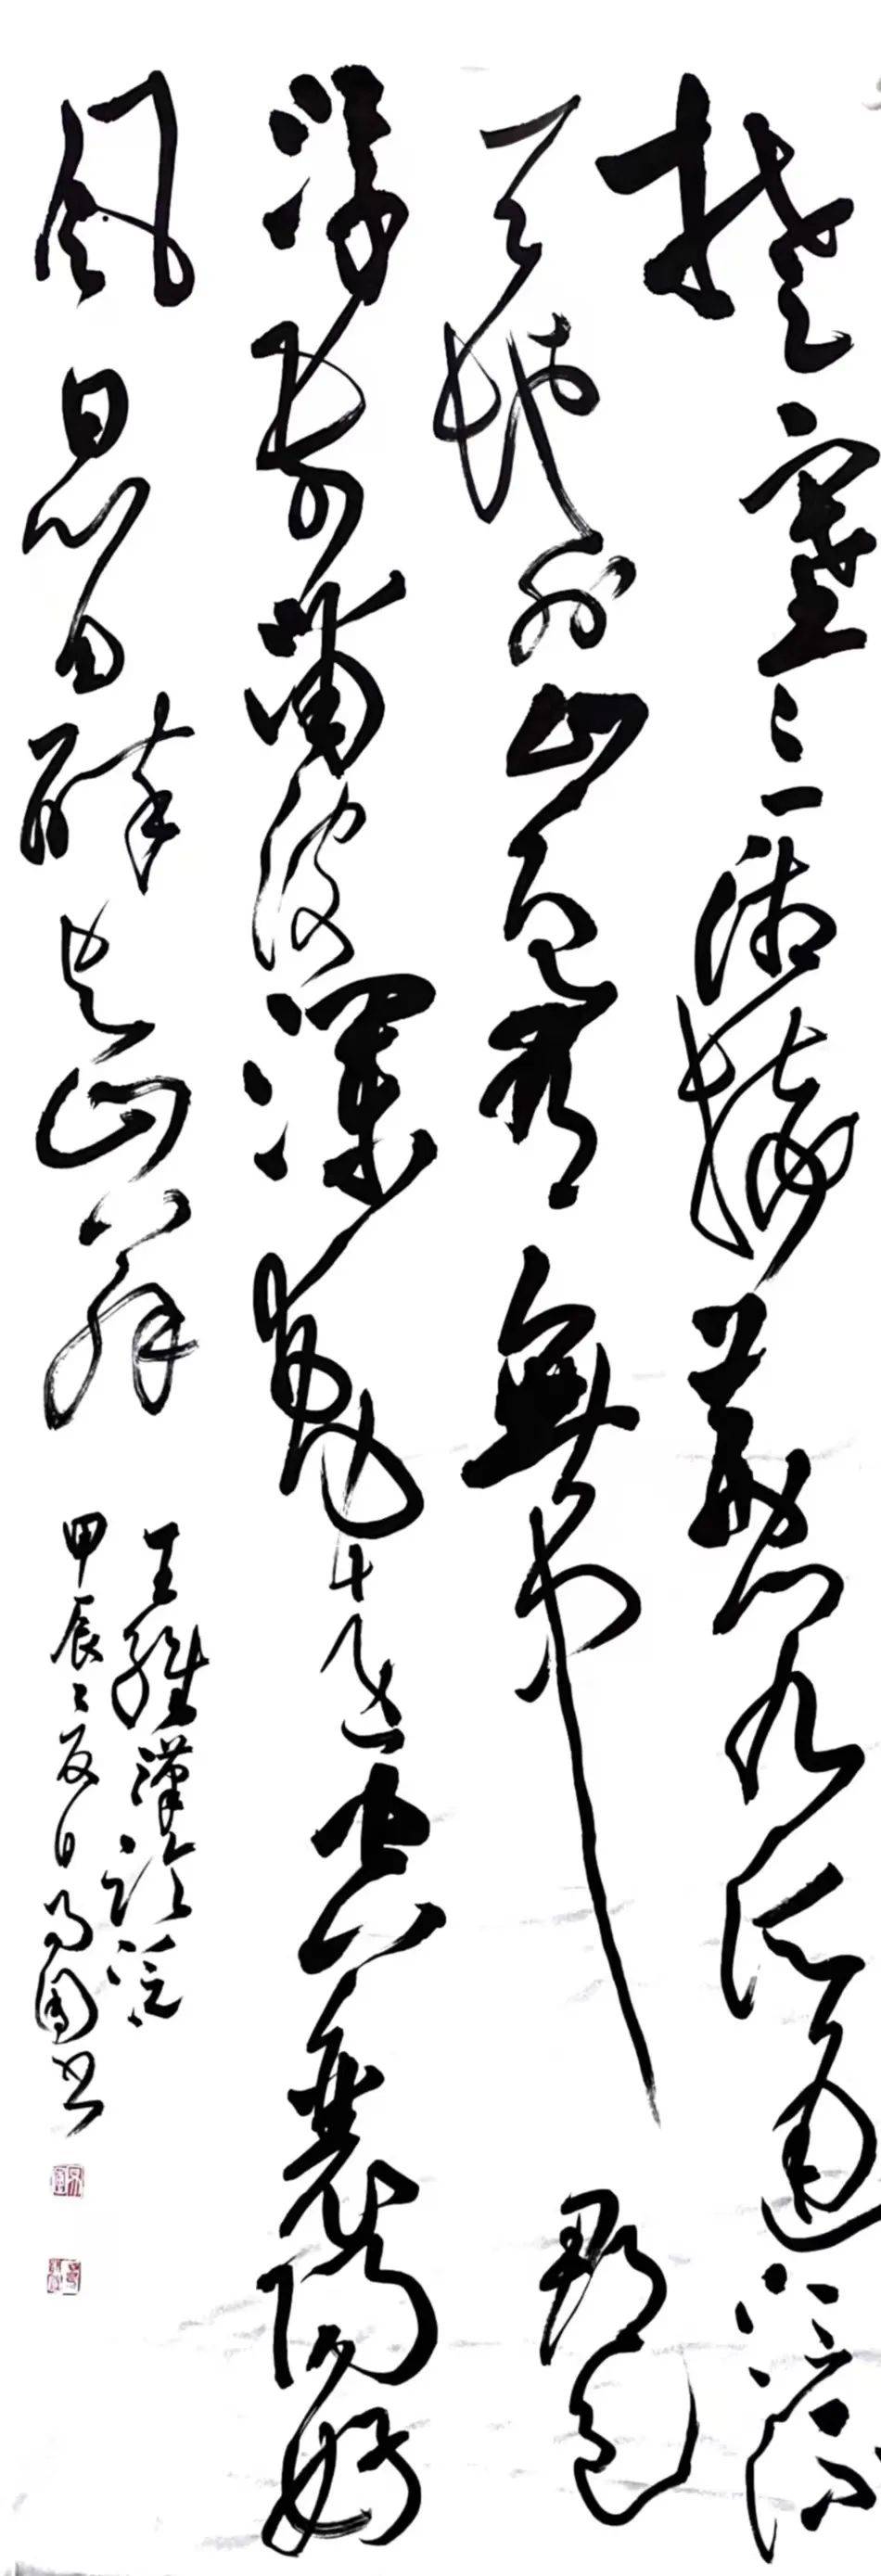 楚塞三湘接荆門九派通江流
天地外山色有無中郡邑
浮前浦波瀾動遠空襄陽好
風日留醉与山翁
王維漢江臨泛
甲辰之夏日书